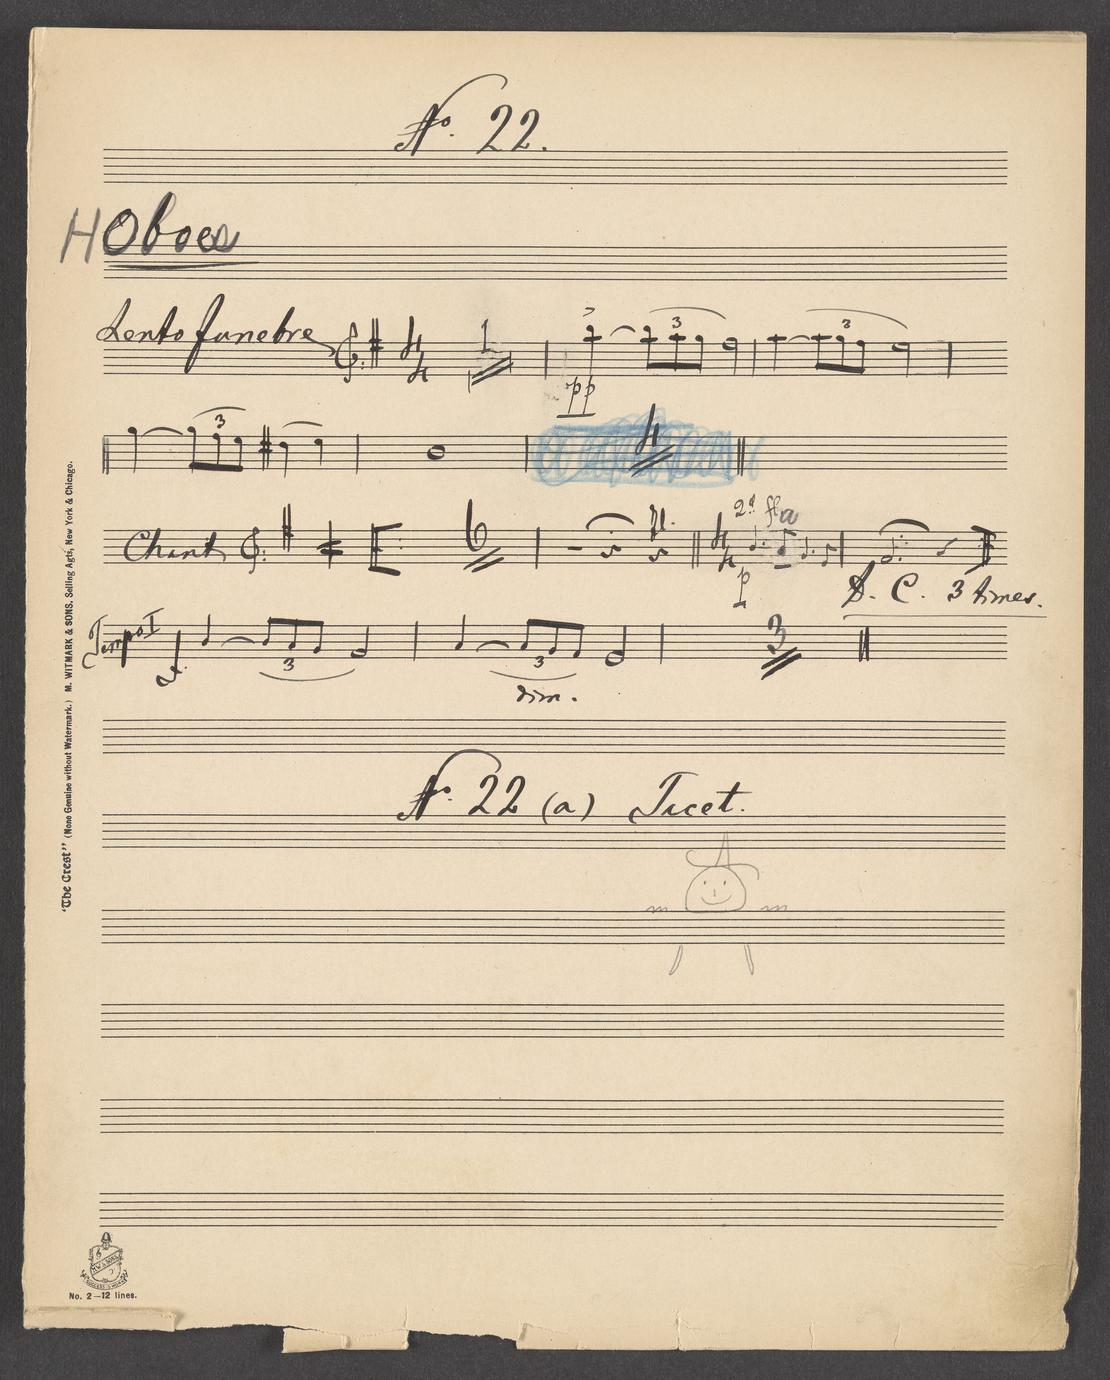 No. 22.
HOboes
Lento funebre 4 4 1 3 3
pp
3 4
2d fla
Chant 6 4 4
p D. C. 3 times.
Tempo I
3 3 3
dim.
No. 22 (a) Tacet.
"The Crest" (None Genuine without Watermark.) M. WITMARK & SONS, Selling Agts, New York & Chicago.
No. 2—12 lines.